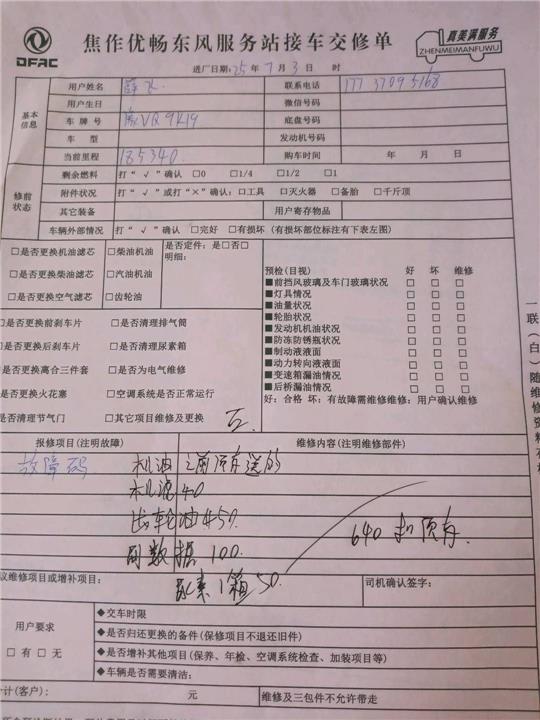 DFAC
焦作优畅东风服务站接车交修单
真美满服务
ZHENMEIMANFUWU
送厂日期: 25 年 7 月 3 日 时
基本信息
用户姓名 薛飞 联系电话 17737095168
用户生日 微信号码
车牌号 豫VQ9K19 底盘号码
车型 发动机号码
当前里程 185340. 购车时间 年 月 日
修前状态
剩余燃料 打“√”确认 □0 □1/4 □1/2 □1
附件状况 打“√”或打“×”确认: □工具 □灭火器 □备胎 □千斤顶
其它装备 用户寄存物品
车辆外部情况 打“√”确认 □完好 □有损坏 (有损坏部位标注有下表左图)
□是否更换机油滤芯 □柴油机油 是否定件: 是□否□
明细:
□是否更换柴油滤芯 □汽油机油
□是否更换空气滤芯 □齿轮油
预检(目视) 好 坏 维修
■前挡风玻璃及车门玻璃状况 □ □ □
■灯具情况 □ □ □
■油量状况 □ □ □
■轮胎状况 □ □ □
■发动机机油状况 □ □ □
■防冻防锈瓶状况 □ □ □
■制动液液面 □ □ □
■动力转向液液面 □ □ □
■变速箱漏油情况 □ □ □
■后桥漏油情况 □ □ □
好: 合格 坏: 有故障需维修维修: 用户确认维修
□是否更换前刹车片 □是否清理排气筒
□是否更换后刹车片 □是否清理尿素箱
□是否更换离合三件套 □是否为电气维修
是否更换火花塞 □空调系统是否正常运行
是否清理节气门 □其它项目维修及更换
报修项目(注明故障) 维修内容(注明维修部件)
故障码 机油 之前预存送的
机滤 40
齿轮油 450.
刷数据 100.
尿素1箱 50.
640 扣预存.
议维修项目或增补项目: 司机确认签字:
用户要求
□有 □无
◆交车时限
◆是否归还更换的备件(保修项目不退还旧件)
◆是否增补其他项目(保养、年检、空调系统检查、加装项目等)
◆车辆是否需要清洁:
合计(客户): 元 维修及三包件不允许带走
一联(白)随维修资料